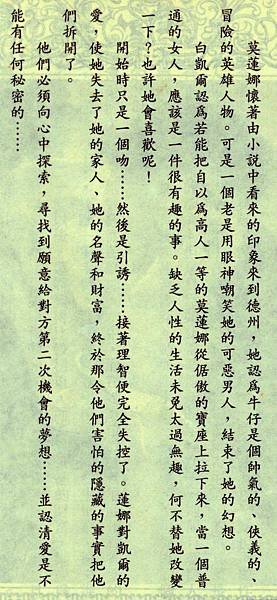 莫蓮娜懷著由小說中看來的印象來到德州，她認為牛仔是個帥氣的、俠義的、
冒險的英雄人物。可是一個老是用眼神嘲笑她的可惡男人，結束了她的幻想。
白凱爾認為若能把自以爲高人一等的莫蓮娜從倨傲的寶座上拉下來，當一個普
通的女人，應該是一件很有趣的事。缺乏人性的生活未免太過無趣，何不替她改變
一下？也許她會喜歡呢！
開始時只是一個吻……然後是引誘……接著理智便完全失控了。蓮娜對凱爾的
愛，使她失去了她的家人、她的名聲和財富，終於那令他們害怕的隱藏的事實把他
們拆開了。
他們必須向心中探索，尋找到願意給對方第二次機會的夢想……並認清愛是不
能有任何秘密的……